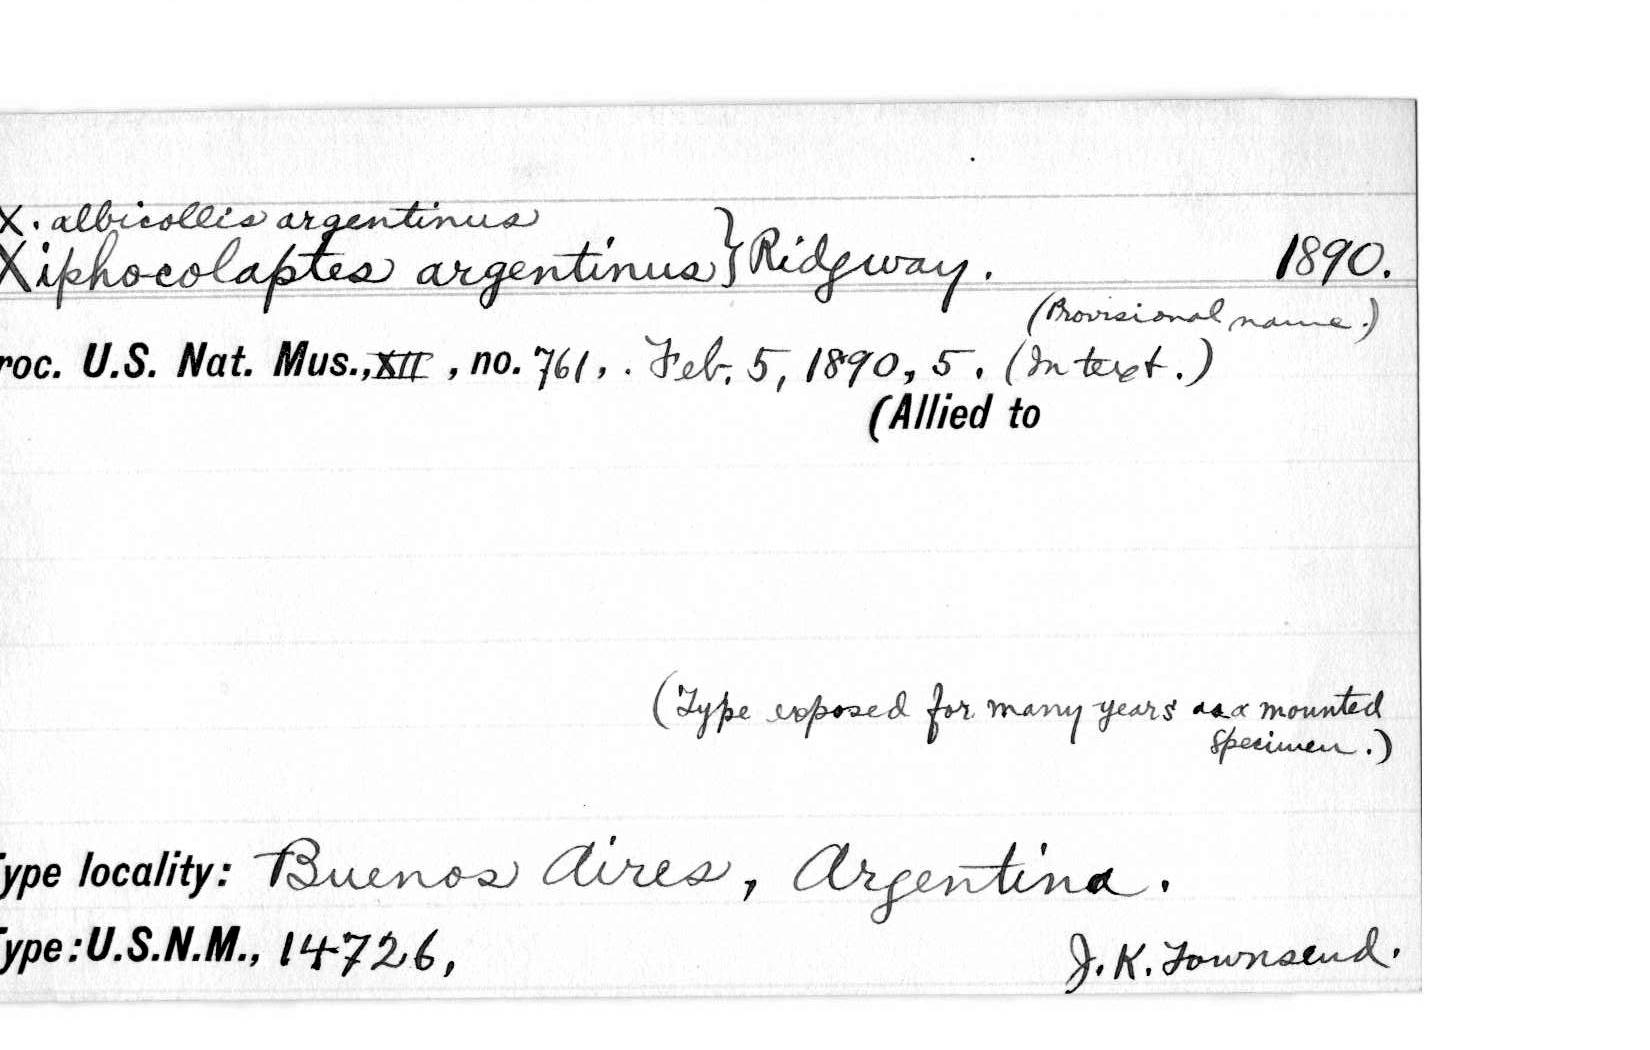 X. albicollis argentinus
Xiphocolaptes argentinus } Ridgway. 1890.
(Provisional name.)
roc. U.S. Nat. Mus., XII, no. 761, . Feb. 5, 1890, 5. (In text.)
(Allied to
(Type exposed for many years as a mounted
specimen.)
Type locality: Buenos Aires, Argentina.
Type: U.S.N.M., 14726, J. K. Townsend.